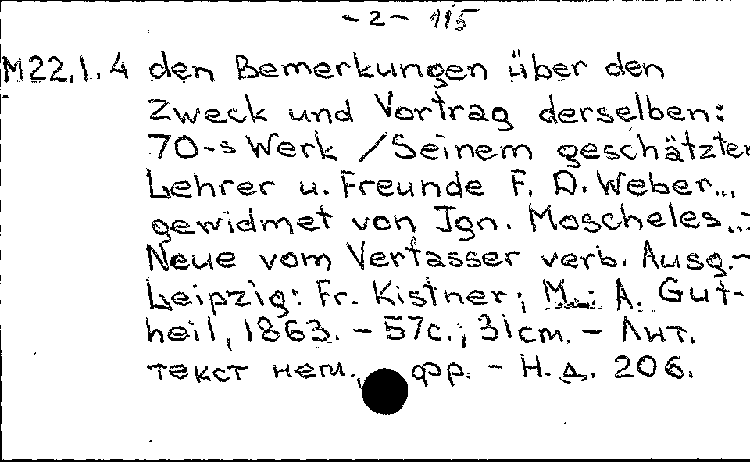 - 2 - 115
M22.1.4 den Bemerkungen über den
Zweck und Vortrag derselben:
70-s Werk / Seinem geschätzten
Lehrer u. Freunde F. D. Weber...,
gewidmet von Jgn. Moscheles..:
Neue vom Verfasser verb. Ausg.-
Leipzig: Fr. Kistner; M.: A. Gut-
heil, 1863. - 57c.; 31cm. - Лит.
текст нем., фр. - Н.д. 206.